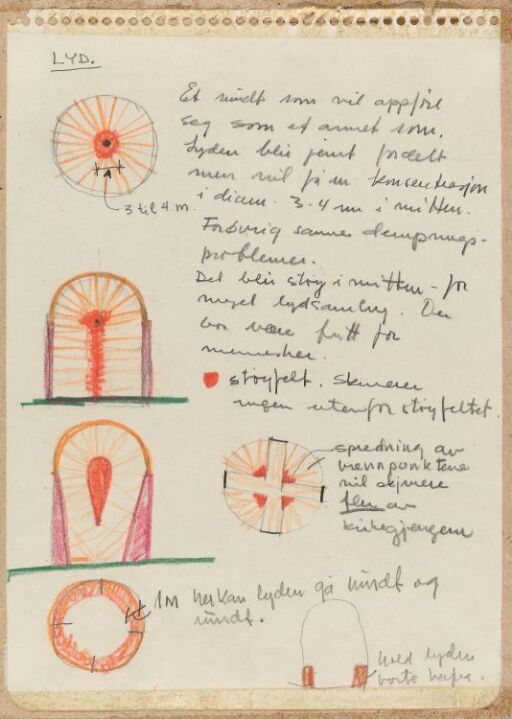 LYD.
Et rundt rom vil oppföre
seg som et annet rom.
Lyden blir jevnt fordelt
men vil få en konsentrasjon
i diam. 3-4 m i mitten.
3 til 4 m.
Forøvrig samme dempnings-
problemer.
Det blir stöy i mitten - for
meget lydsamling. Den
bør være fritt for
mennesker.
stöyfelt. Skjemmer
ingen utenfor stöyfeltet.
spredning av
brennpunktene
vil skjemme
flere av
kirkegjengerne
1M her kan lyden gå rundt og
rundt.
hold lyden
borte herfra.